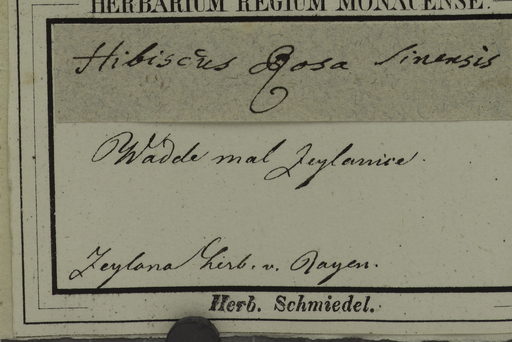 HERBARIUM REGIUM MONACENSE.
Hibiscus Rosa Sinensis
Wadde mal Zeylanice.
Zeylona herb. v. Royen.
Herb. Schmiedel.